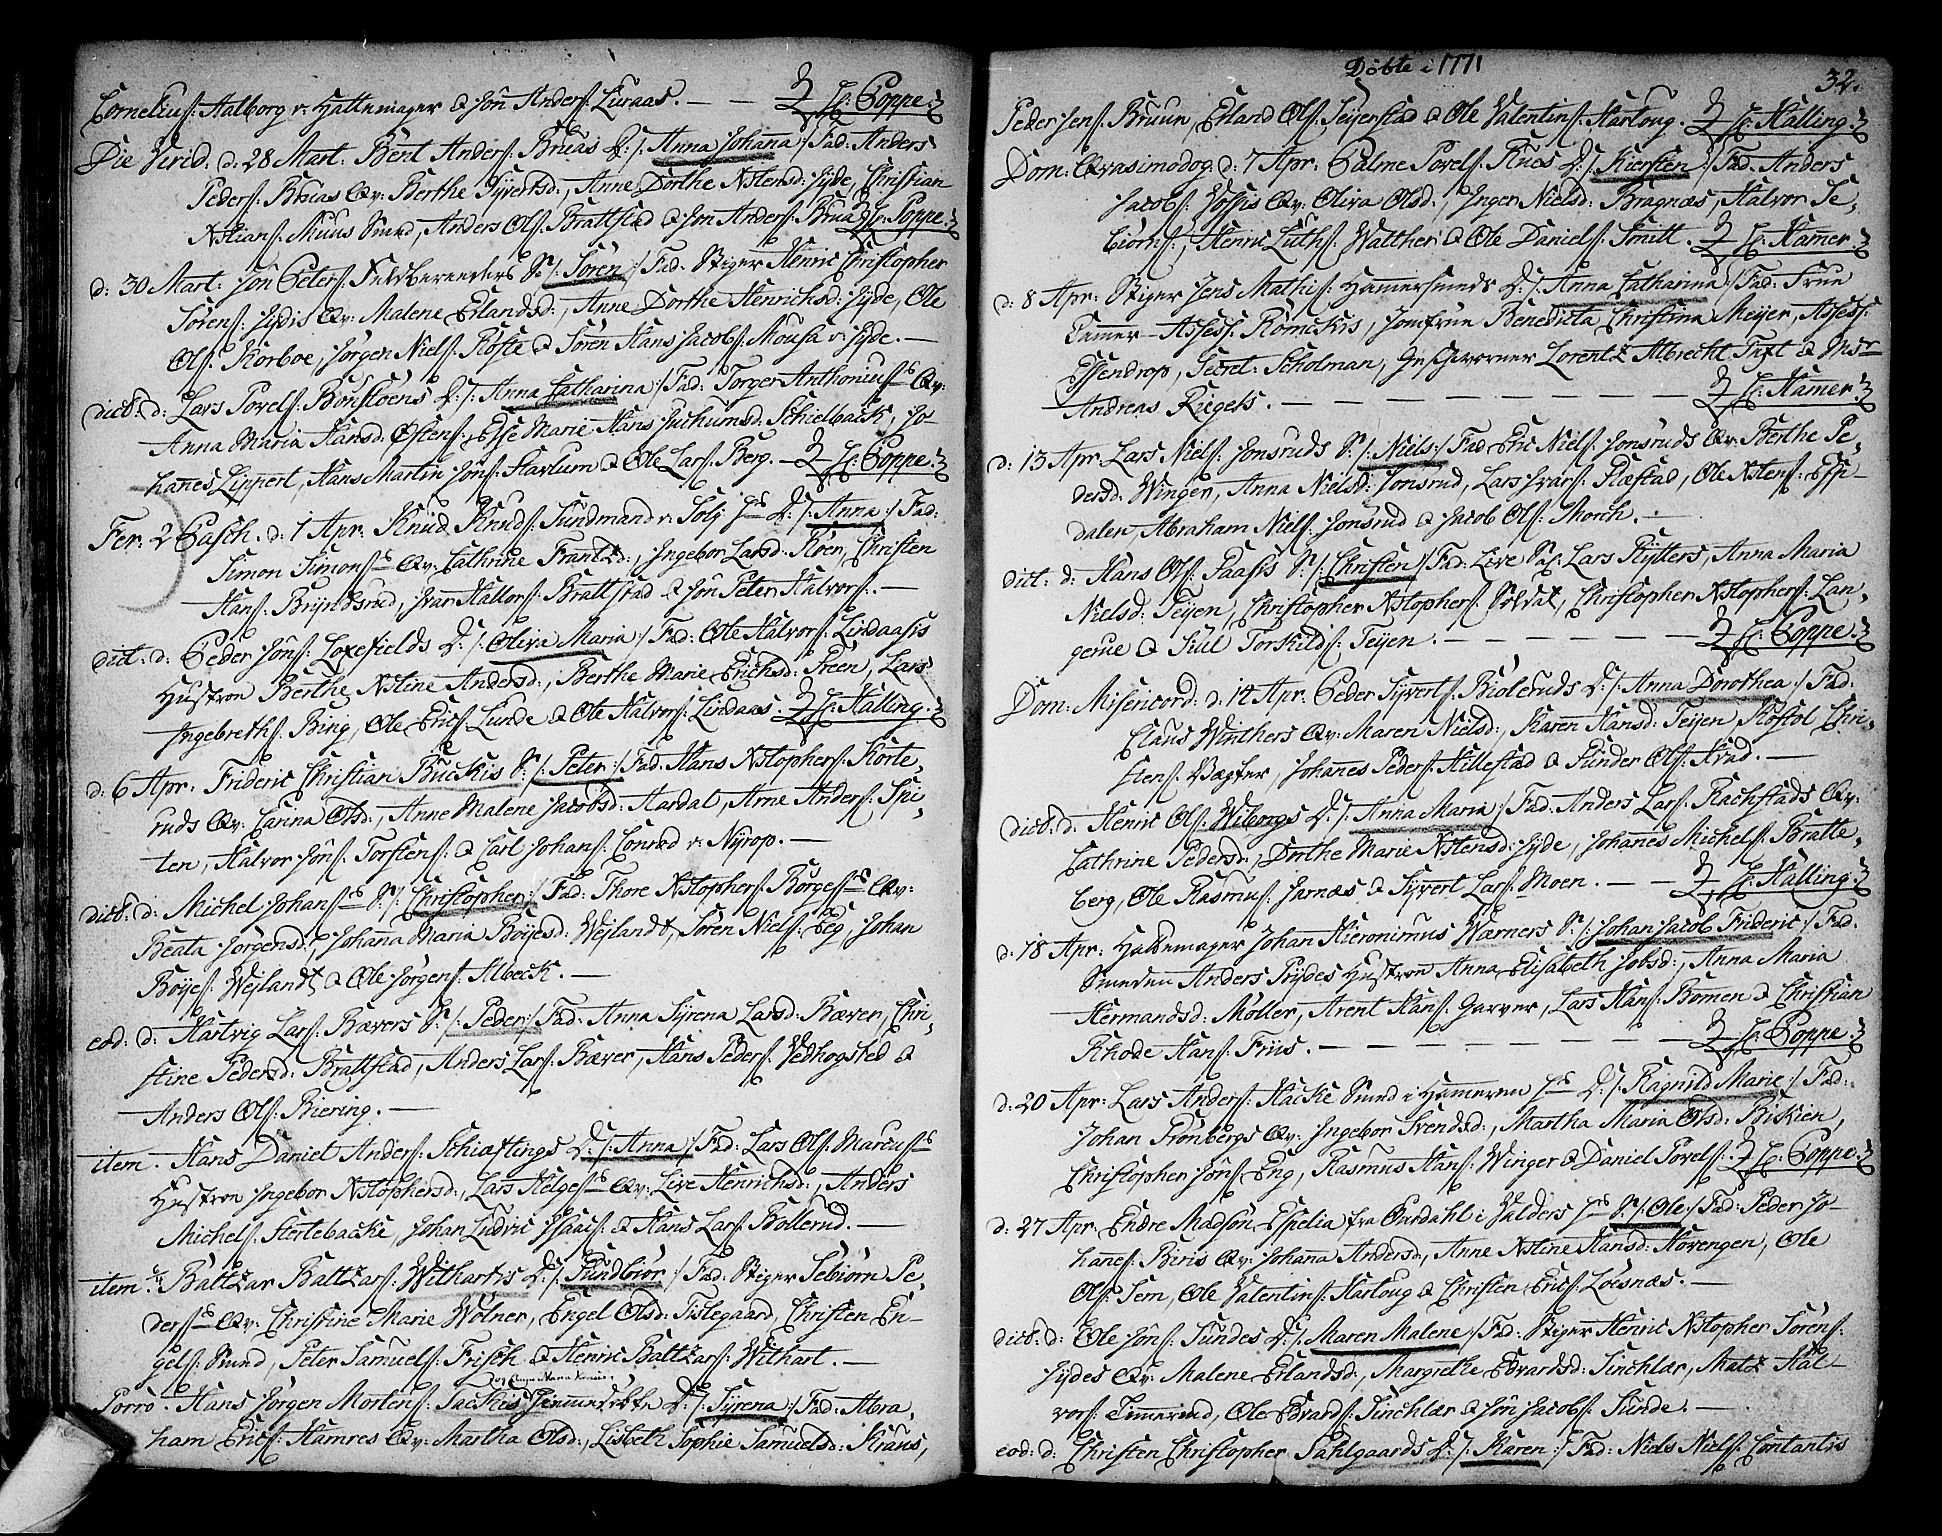 Corneliusſ: Aalborg v: Hattemager & Jon Andersſ: Luraas. — — H: Poppe.
Die Virid. d: 28 Mart: Bent Andersſ: Bruas D: /: Anna Johana :/ Fad: Anders
Pedersſ: Bruas Qv: Berthe Syvertsd:, Anne Dorthe Xstensd: Jyde, Christian
Xstiansſ: Muus Smed, Anders Olsſ: Brattstad & Jon Andersſ: Brua H: Poppe.
d: 30 Mart: Jon Petersſ: S: /: Sören :/ Fad: Stiger Henric Christopher
Sörensſ: Jydes Qv: Malene Erlandsd:, Anne Dorthe Henrichsd: Jyde, Ole
Olsſ: Korboe, Jörgen Nielsſ: Kofte & Sören Hans Jacobsſ: Mousa v: Jyde. —
dict: d: Lars Povelsſ: Bönsloens D: /: Anna Catharina :/ Fad: Torger Anthoniusſ: Qv:
Anna Maria Hansd: Östensſ:, Else Marie Hans Juthumsd: Schielbæck, Jo-
hanes Lippert, Hans Martin Jönsſ: Starlum & Ole Larsſ: Berg. — H: Poppe.
Fer: 2 Pasch. d: 1 Apr: Knud Knudsſ: Sundmand v: Solj: D: /: Anna :/ Fad:
Simon Simonsſ: Qv: Cathrine Frantzd:, Ingebor Larsd: Roen, Christen
Hansſ: Bryndsrud, Ivar Hallorsſ: Brattstad & Jon Peter Halvorsſ: —
dict: d: Peder Jonsſ: Loxefields D: /: Oliva Maria :/ Fad: Ole Halvorsſ: Lindaases
Hustroe Berthe Xstine Andersd:, Berthe Marie Erichsd: Preen, Lars
Ingebrethsſ: Bing, Ole Ericsſ: Lunde & Ole Halvorsſ: Lindaas. H: Halling.
d: 6 Apr: Frideric Christian Buckis S: /: Peter :/ Fad: Hans Xstophersſ: Korte-
ruds Qv: Carina Olsd:, Anne Malene Jacobsd: Aardal, Arne Andersſ: Spi-
ten, Halvor Jönsſ: Torstensſ: & Carl Johansſ: Conrad v: Nyrop. —
dict: d: Michel Johansſ: S: /: Christopher :/ Fad: Thore Xstophersſ: Börgesſ: Qv:
Beata Jörgensd:, Johana Maria Böyesd: Weylandt, Sören Nielsſ: Eg, Johan
Böyesſ: Weylandt & Ole Jörgensſ: Albeck. —
eod: d: Hartvig Larsſ: Bævers S: /: Peder :/ Fad: Anna Syrena Larsd: Bæver, Chri-
stine Pedersd: Brattstad, Anders Larsſ: Bæver, Hans Pedersſ: Vedhogsted &
Anders Olsſ: Biering. —
item. Hans Daniel Andersſ: Schiøttings D: /: Anna :/ Fad: Lars Olsſ: Marcusſ:
Hustroe Ingebor Xstophersd:, Lars Helgesſ: Qv: Live Henrichsd:, Anders
Michelsſ: Hertebacke, Johan Ludvic Isaacsſ: & Hans Larsſ: Bollerud. —
item: Baltzar Baltzarsſ: Withartis D: /: Gundbior :/ Fad: Stiger Tebiörn Pe-
dersſ: Qv: Christine Marie Wölner, Engel Olsd: Tislegaard, Christen En-
gelsſ: Smed, Peter Samuelsſ: Frisch & Henric Baltzarsſ: Withart. —
Porro. Hans Jörgen Mortensſ: Sackis D: /: Syrena :/ Fad: Abra-
ham Ericsſ: Hamres Qv: Martha Olsd:, Lisbeth Sophie Samuelsd: Kraus,
Döbte i 1771
32.
Peder Jensſ: Bruun, Erland Olsſ: Seyerstad & Ole Valentinsſ: Hartoug. H: Halling.
Dom: Qvasimodog: d: 7 Apr: Palme Povelsſ: Knæs D: /: Kiersten :/ Fad: Anders
Jacobsſ: Fossis Qv: Oliva Olsd:, Inger Nielsd: Bragnæs, Halvor Te-
biörnsſ:, Henric Luthsſ: Walther & Ole Danielsſ: Smitt. H: Hamer.
d: 8 Apr: Stiger Jens Mathisſ: Hamersunds D: /: Anna Catharina :/ Fad: Frue
Cammer-Assessſ: Römckes, Jomfrue Benedicta Christina Meyer, Assessſ:
Essendrop, Secret: Scholman, Geschworner Lorentz Albrecht Tuxt & Msr
Andreas Riegels. — — — H: Hamer.
d: 13 Apr: Lars Nielsſ: Jonsruds S: /: Niels :/ Fad: Eric Nielsſ: Jonsruds Qv: Berthe Pe-
dersd: Winger, Anna Nielsd: Jonsrud, Lars Ivarsſ: Flæstad, Ole Xstensſ: Espe-
dalen, Abraham Nielsſ: Jonsrud & Jacob Olsſ: Morch. —
dict: d: Hans Olsſ: Paasis S: /: Christen :/ Fad: Live Lars Rytters, Anna Maria
Nielsd: Teyen, Christopher Xstophersſ: Soldat, Christopher Xstophersſ: Lan-
gerue & Kiul Torkildsſ: Teyen. — — — H: Poppe.
Dom: Misericord: d: 14 Apr: Peder Syvertsſ: Bioleruds D: /: Anna Dorothea :/ Fad:
Claus Winthers Qv: Maren Nielsd:, Karen Hansd: Teyen, Kostol Chri-
stensſ: Vægter, Johanes Pedersſ: Hillestad & Gunder Olsſ: Krad. —
dict: d: Henric Olsſ: Wibergs D: /: Anna Maria :/ Fad: Anders Larsſ: Rachstads Qv:
Cathrine Pedersd:, Dorthe Marie Xstensd: Jyde, Johanes Michelsſ: Bratte-
berg, Ole Rasmusſ: Jarnæs & Syvert Larsſ: Moen. — — H: Halling.
d: 18 Apr: Hattemager Johan Hieronimus Wærners S: /: Johan Jacob Frideric :/ Fad:
Smeden Anders Prydes Hustroe Anna Elisabeth Jobsd:, Anna Maria
Hermandsd: Möller, Arent Hansſ: Garver, Lars Hansſ: Bömen & Christian
Rhode Hansſ: Friis. — — — H: Poppe.
d: 20 Apr: Lars Andersſ: Hacke Smed i Hammeren D: /: Ragnild Marie :/ Fad:
Johan Trönbergs Qv: Ingebor Svendsd:, Martha Maria Olsd: Biskien,
Christopher Jönsſ: Eng, Rasmus Hansſ: Winger & Daniel Povelsſ: H: Poppe.
d: 27 Apr: Endre Madsön Espelia fra Ourdahl i Valders S: /: Ole :/ Fad: Peder Jo-
hanesſ: Biris Qv: Johana Andersd:, Anne Xstine Hansd: Hovengen, Ole
Olsſ: Sem, Ole Valentinsſ: Hartoug & Christen Ericsſ: Loesnæs. —
dict: d: Ole Jönsſ: Sundes D: /: Maren Malene :/ Fad: Stiger Henric Xstopher Sörensſ:
Jydes Qv: Malene Erlandsd:, Margrethe Edvardsd: Sinchlær, Matz Hal-
vorsſ: Timerud, Ole Edvardsſ: Sinchlær & Jön Jacobsſ: Sunde. —
eod: d: Christen Christopher Dahlgaards D: /: Karen :/ Fad: Niels Nielsſ: Contantis